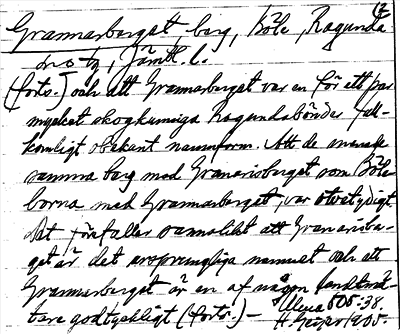 (2
Grannarberget, berg, Böle, Ragunda
sn o tg, Jämtl. l.
(forts.) och att Grannarberget var en för ett par
mycket skogkunniga Ragundabönder full-
komligt obekant namnform. Att de menade
samma berg med Granarisberget som Böle-
borna med Grannarberget, var otvetydigt.
Det förefaller sannolikt att Granarisber-
get är det ursprungliga namnet och att
Grannarberget är en af någon lantmä-
tare godtyckligt (forts.) –
1905.